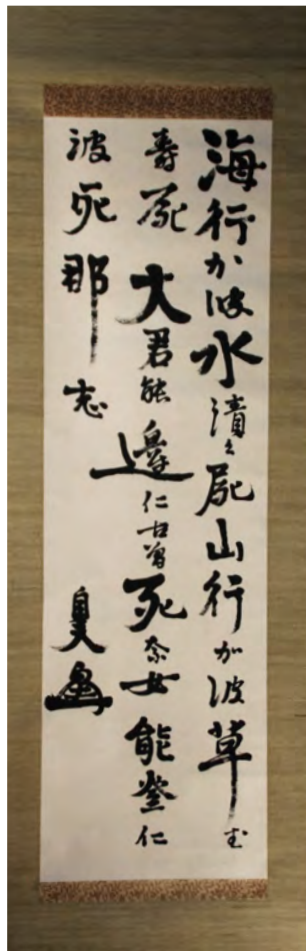 海行か波水漬久屍山行加波草武
寿屍大君能邊仁古曽死奈女能登仁
波死那志